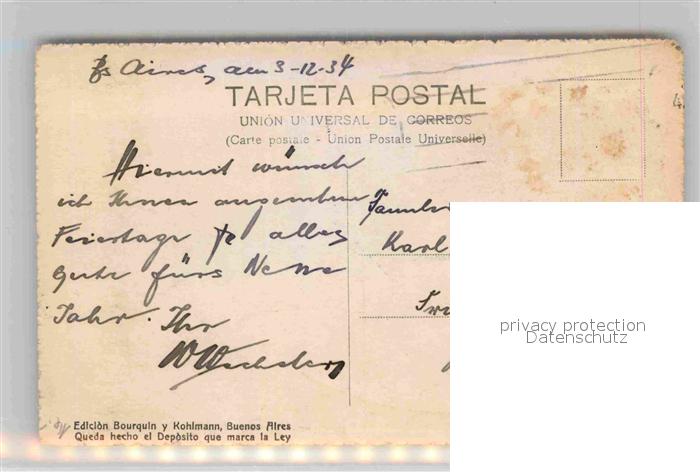 Bs Aires, den 3-12-34
TARJETA POSTAL
UNIÓN UNIVERSAL DE CORREOS
(Carte postale - Union Postale Universelle)
Hiermit wünsch
ich Ihnen angenehme
Feiertage & alles
Gute fürs Neue
Jahr. Ihr
Karl
privacy protection
Datenschutz
Edición Bourquin y Kohlmann, Buenos Aires
Queda hecho el Depósito que marca la Ley